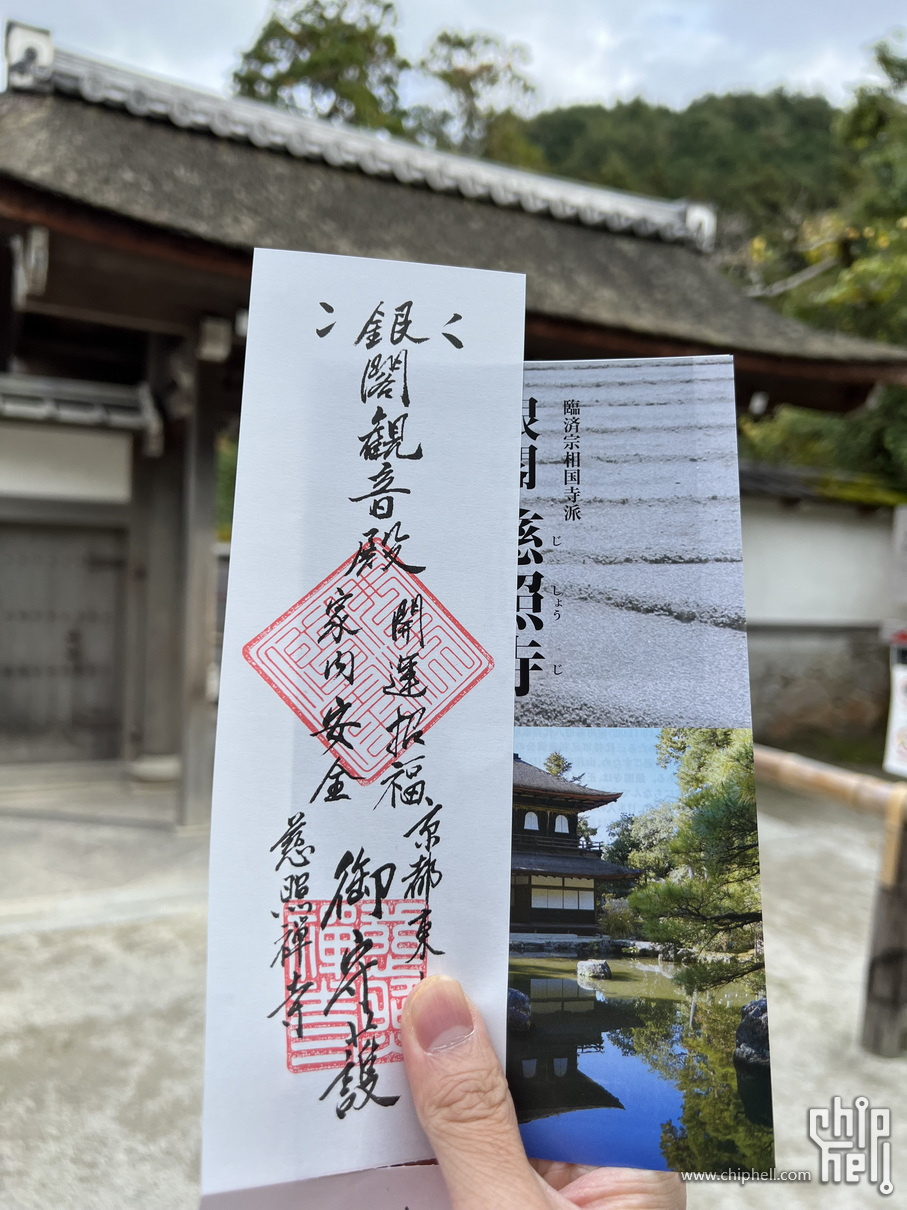 銀閣観音殿
開運招福
家内安全
京都東
御守護
慈照禅寺
臨済宗相国寺派
銀閣 慈照寺
じ しょう じ
www.chiphell.com
chip
hell